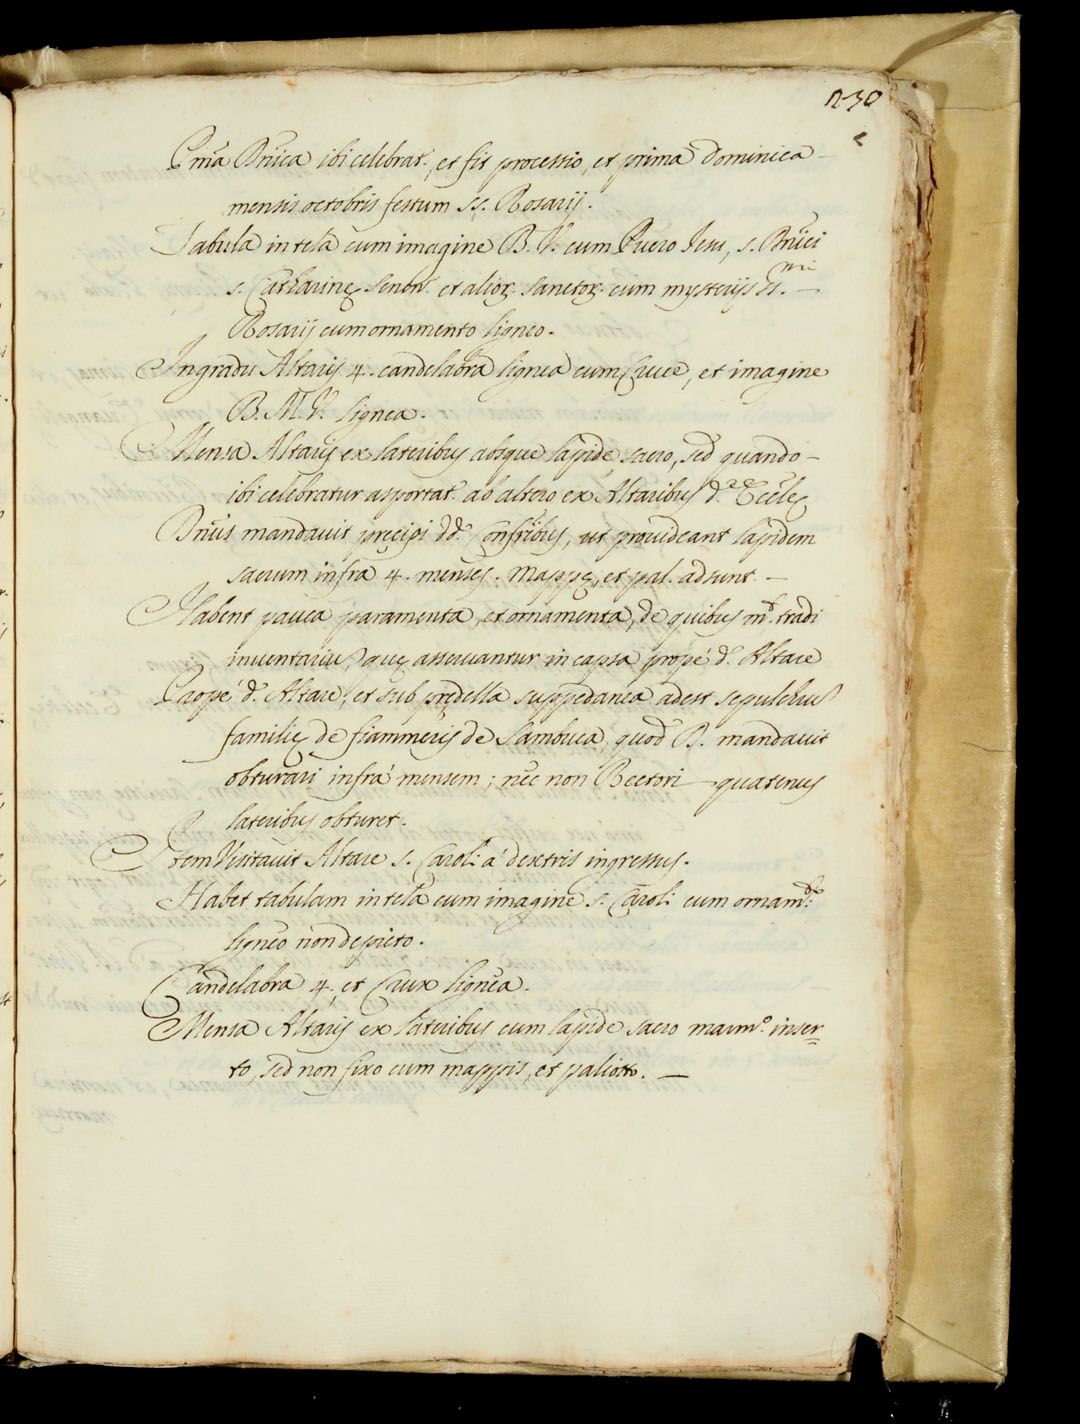 230
Pma Dnica ibi celebrat., et fit processio, et prima dominica
mensis octobris festum SS. Rosarij.
Tabula in tela cum imagine B. V. cum Puero Jesu, s. Dnici
s. Catharinę Senen. et alior. sanctor. cum mysterijs SS.mi
Rosarij cum ornamento ligneo.
In gradu Altaris 4. candelabra lignea cum Cruce, et imagine
B. M. V. lignea.
Mensa Altaris ex lateribus absque lapide sacro, sed quando
ibi celebratur asportat. ab altero ex Altaribus d.ae Ecclę
Dnus mandavit pręcipi dd. Confribus, ut provideant lapidem
sacrum infra 4. menses. Mappę, et pal. adsunt.
Habent pauca paramenta, et ornamenta, de quibus m.t tradi
inventariu, quę asservantur in capsa propè d. Altare
Propè d. Altare, et sub prędella suppedanea adest sepulchru
familię de fiammeris de Sambuca, quod D. mandavit
obturari infrà mensem; nec non Rectori quatenus
lateribus obturet.
Item Visitavit Altare s. Caroli à dextris ingressus.
Habet tabulam in tela cum imagine s. Caroli cum ornam.to
ligneo non depicto.
Candelabra 4. et Crux lignea.
Mensa Altaris ex lateribus cum lapide sacro marm.o inser=
to, sed non fixo cum mappis, et paliotto.